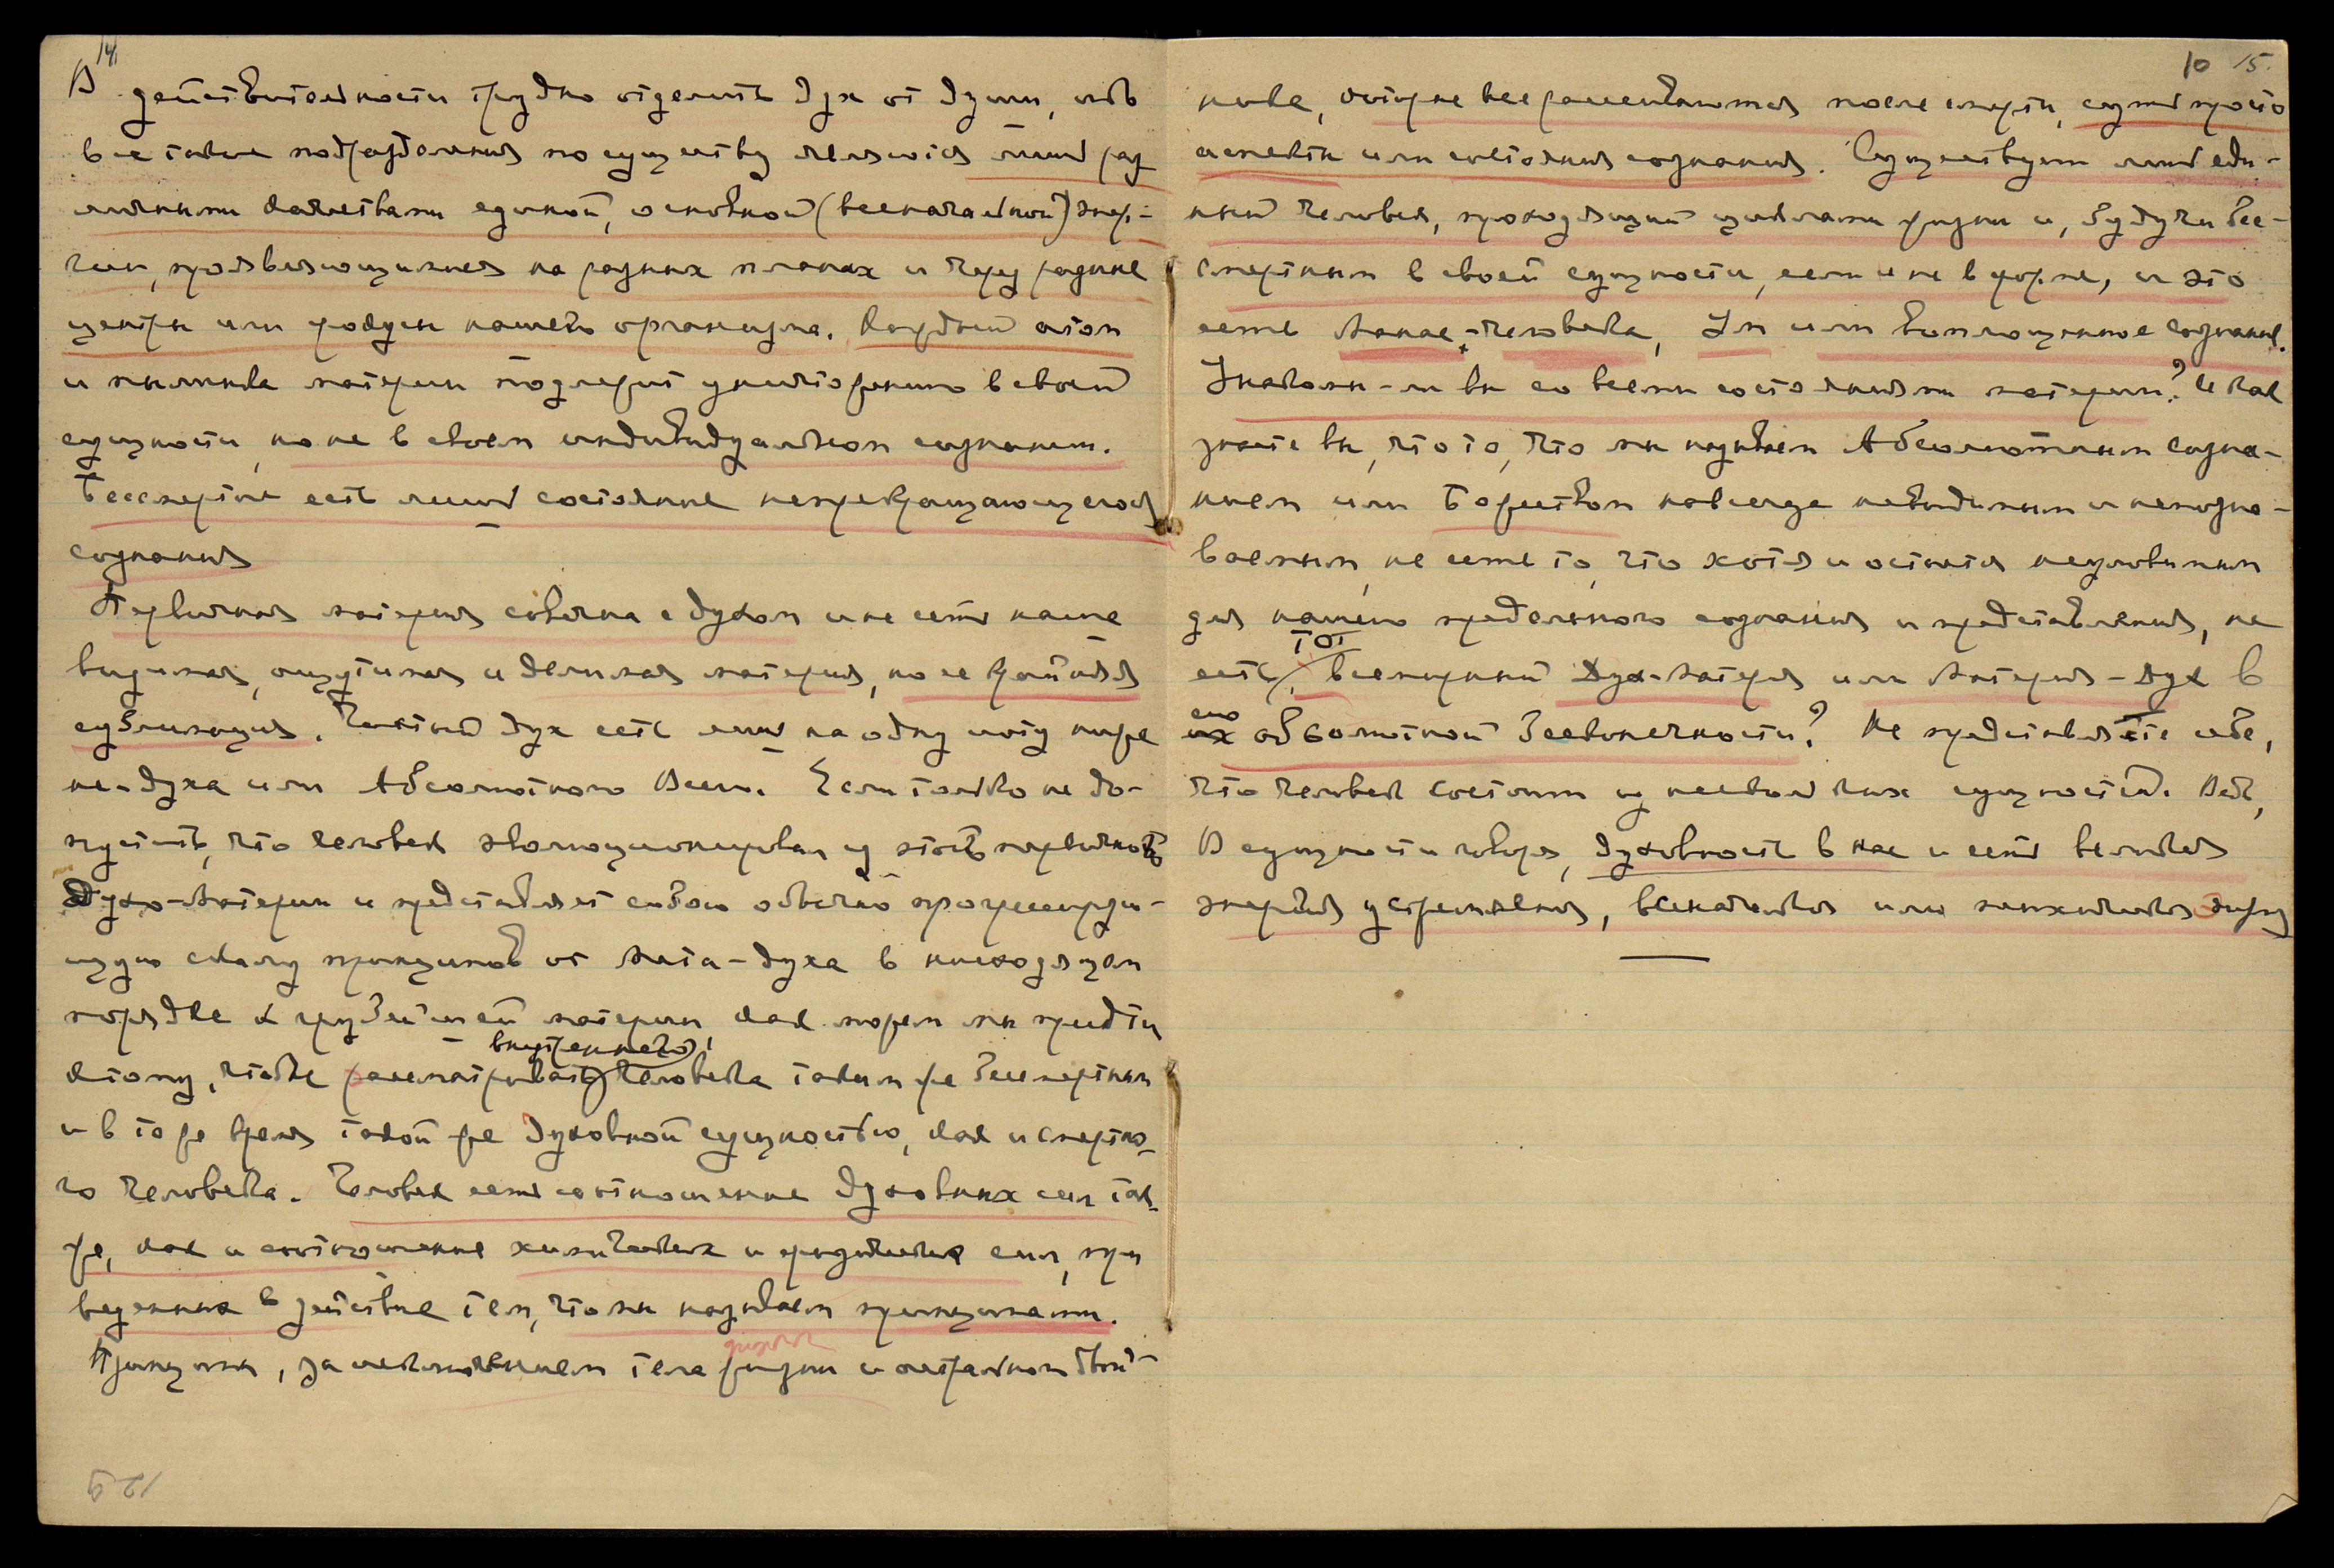 14
В действительности трудно отделить дух от души, ибо
все такие подразделения по существу являются лишь раз
личными качествами единой, основной (всеначальной) энер-
гии, проявляющимися на разных планах и через разные
центры или фокусы нашего организма. Каждый атом
и пылинка материи подлежит уничтожению в своей
сущности, но не в своем индивидуальном сознании.
Бессмертие есть лишь состояние непрекращающегося
сознания
Первичная материя совечна с духом и не есть наша
видимая, ощутимая и делимая материя, но ее крайняя
сублимация. Чистый дух есть лишь на одну ноту ниже
не-духа или Абсолютного Всего. Если только не до-
пустить, что человек эволюционировал из этой первичной
Духо-Материи и представляет собою обычно прогрессирую-
щую скалу принципов от Мета-духа в нисходящем
порядке к грубейшей материи, как можем мы придти
к тому, чтобы рассматривать внутреннего человека таким же бессмертным
и в то же время такой же духовной сущностью, как и смертно-
го человека. Человек есть соотношение духовных сил так-
же, как и соотношение химических и физических сил, при
веденных в действие тем, что мы называем принципами.
Принципы, за исключением тела физич. жизни и астральном двой-
129
10 15.
нике, которые все распадаются после смерти, суть просто
аспекты или состояния сознания. Существует лишь еди-
ный человек, проходящий циклами жизни и, будучи бес-
смертным в своей сущности, если и не в форме, и это
есть Манас-человека, Ум или воплощенное сознание.
Знакомы-ли вы со всеми состояниями материи? И как
знаете вы, что то, что мы называем Абсолютным Созна-
нием или Божеством навсегда невидимым и непозна-
ваемым, не есть то, что хотя и остается неуловимым
для нашего предельного сознания и представления, не
есть тот всемирный Дух-Материя или Материя-Дух в
его абсолютной бесконечности? Не представляйте себе,
что человек состоит из нескольких сущностей. Ведь,
В сущности говоря, духовность в нас и есть великая
энергия устремления, всеначальная или психическая энерг